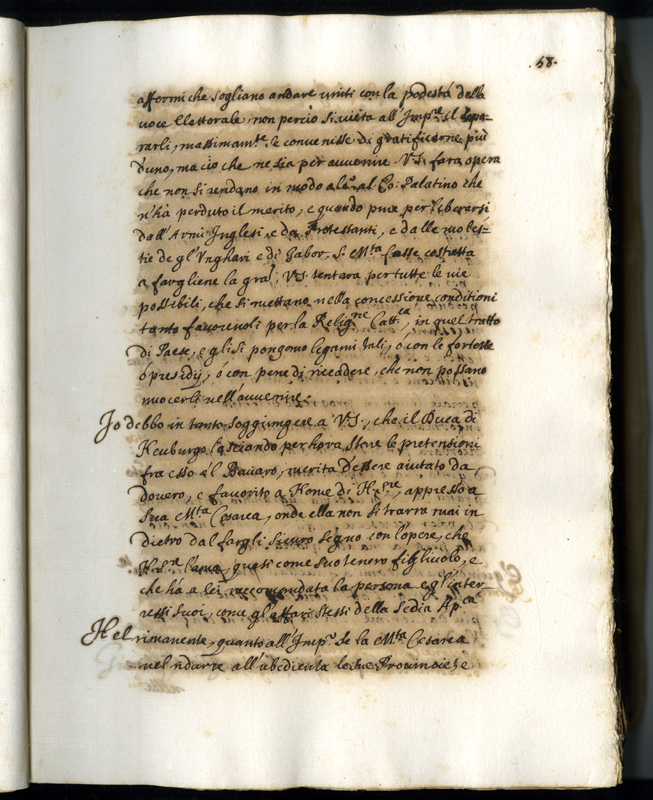 58.
affermi che sogliano andare uniti con la podestà della
voce Elettorale, non perciò si vieta all'Imp.re il sepa-
rarli, massimam.te se convenisse di gratificarne più
d'uno, ma ciò che ne sia per avvenire V.S. farà opera
che non si rendano in modo alc.o al Co: Palatino che
n'hà perduto il merito, e quando pure per liberarsi
dall'Armi Inglesi, e da Protestanti, e dalle moles-
tie de gl'Ungheri e di Gabor, S. M.tà fosse costretta
a fargliene la gra', V.S. tentarà per tutte le vie
possibili, che si mettano nella concessione conditioni
tanto favorevoli per la Relig.ne Catt.ca, in quel tratto
di Paese, e gli si pongono legami tali, o con le fortezze
ò presidij, o con pene di ricadere, che non possano
nuocerli nell'avvenire.
Io debbo in tanto soggiungere a V.S., che il Duca di
Neuburgo lasciando per hora stare le pretensioni
fra esso e'l Bavaro, merita d'essere aiutato da
dovero, e favorito a Nome di N.S.re, appresso a
Sua M.tà Cesarea, onde ella non si trarrà mai in
dietro dal fargli sicuro segno con l'opere, che
N.S.re l'ama, quasi come suo tenero figlivolo, e
che hà a lei raccomandata la persona e gl'inter
ressi suoi, come gl'affari stessi della Sedia Ap.ca
Nel rimanente, quanto all'Imp.o se la M.tà Cesarea
nel ridurre all'ubedienza le sue Provincie, e